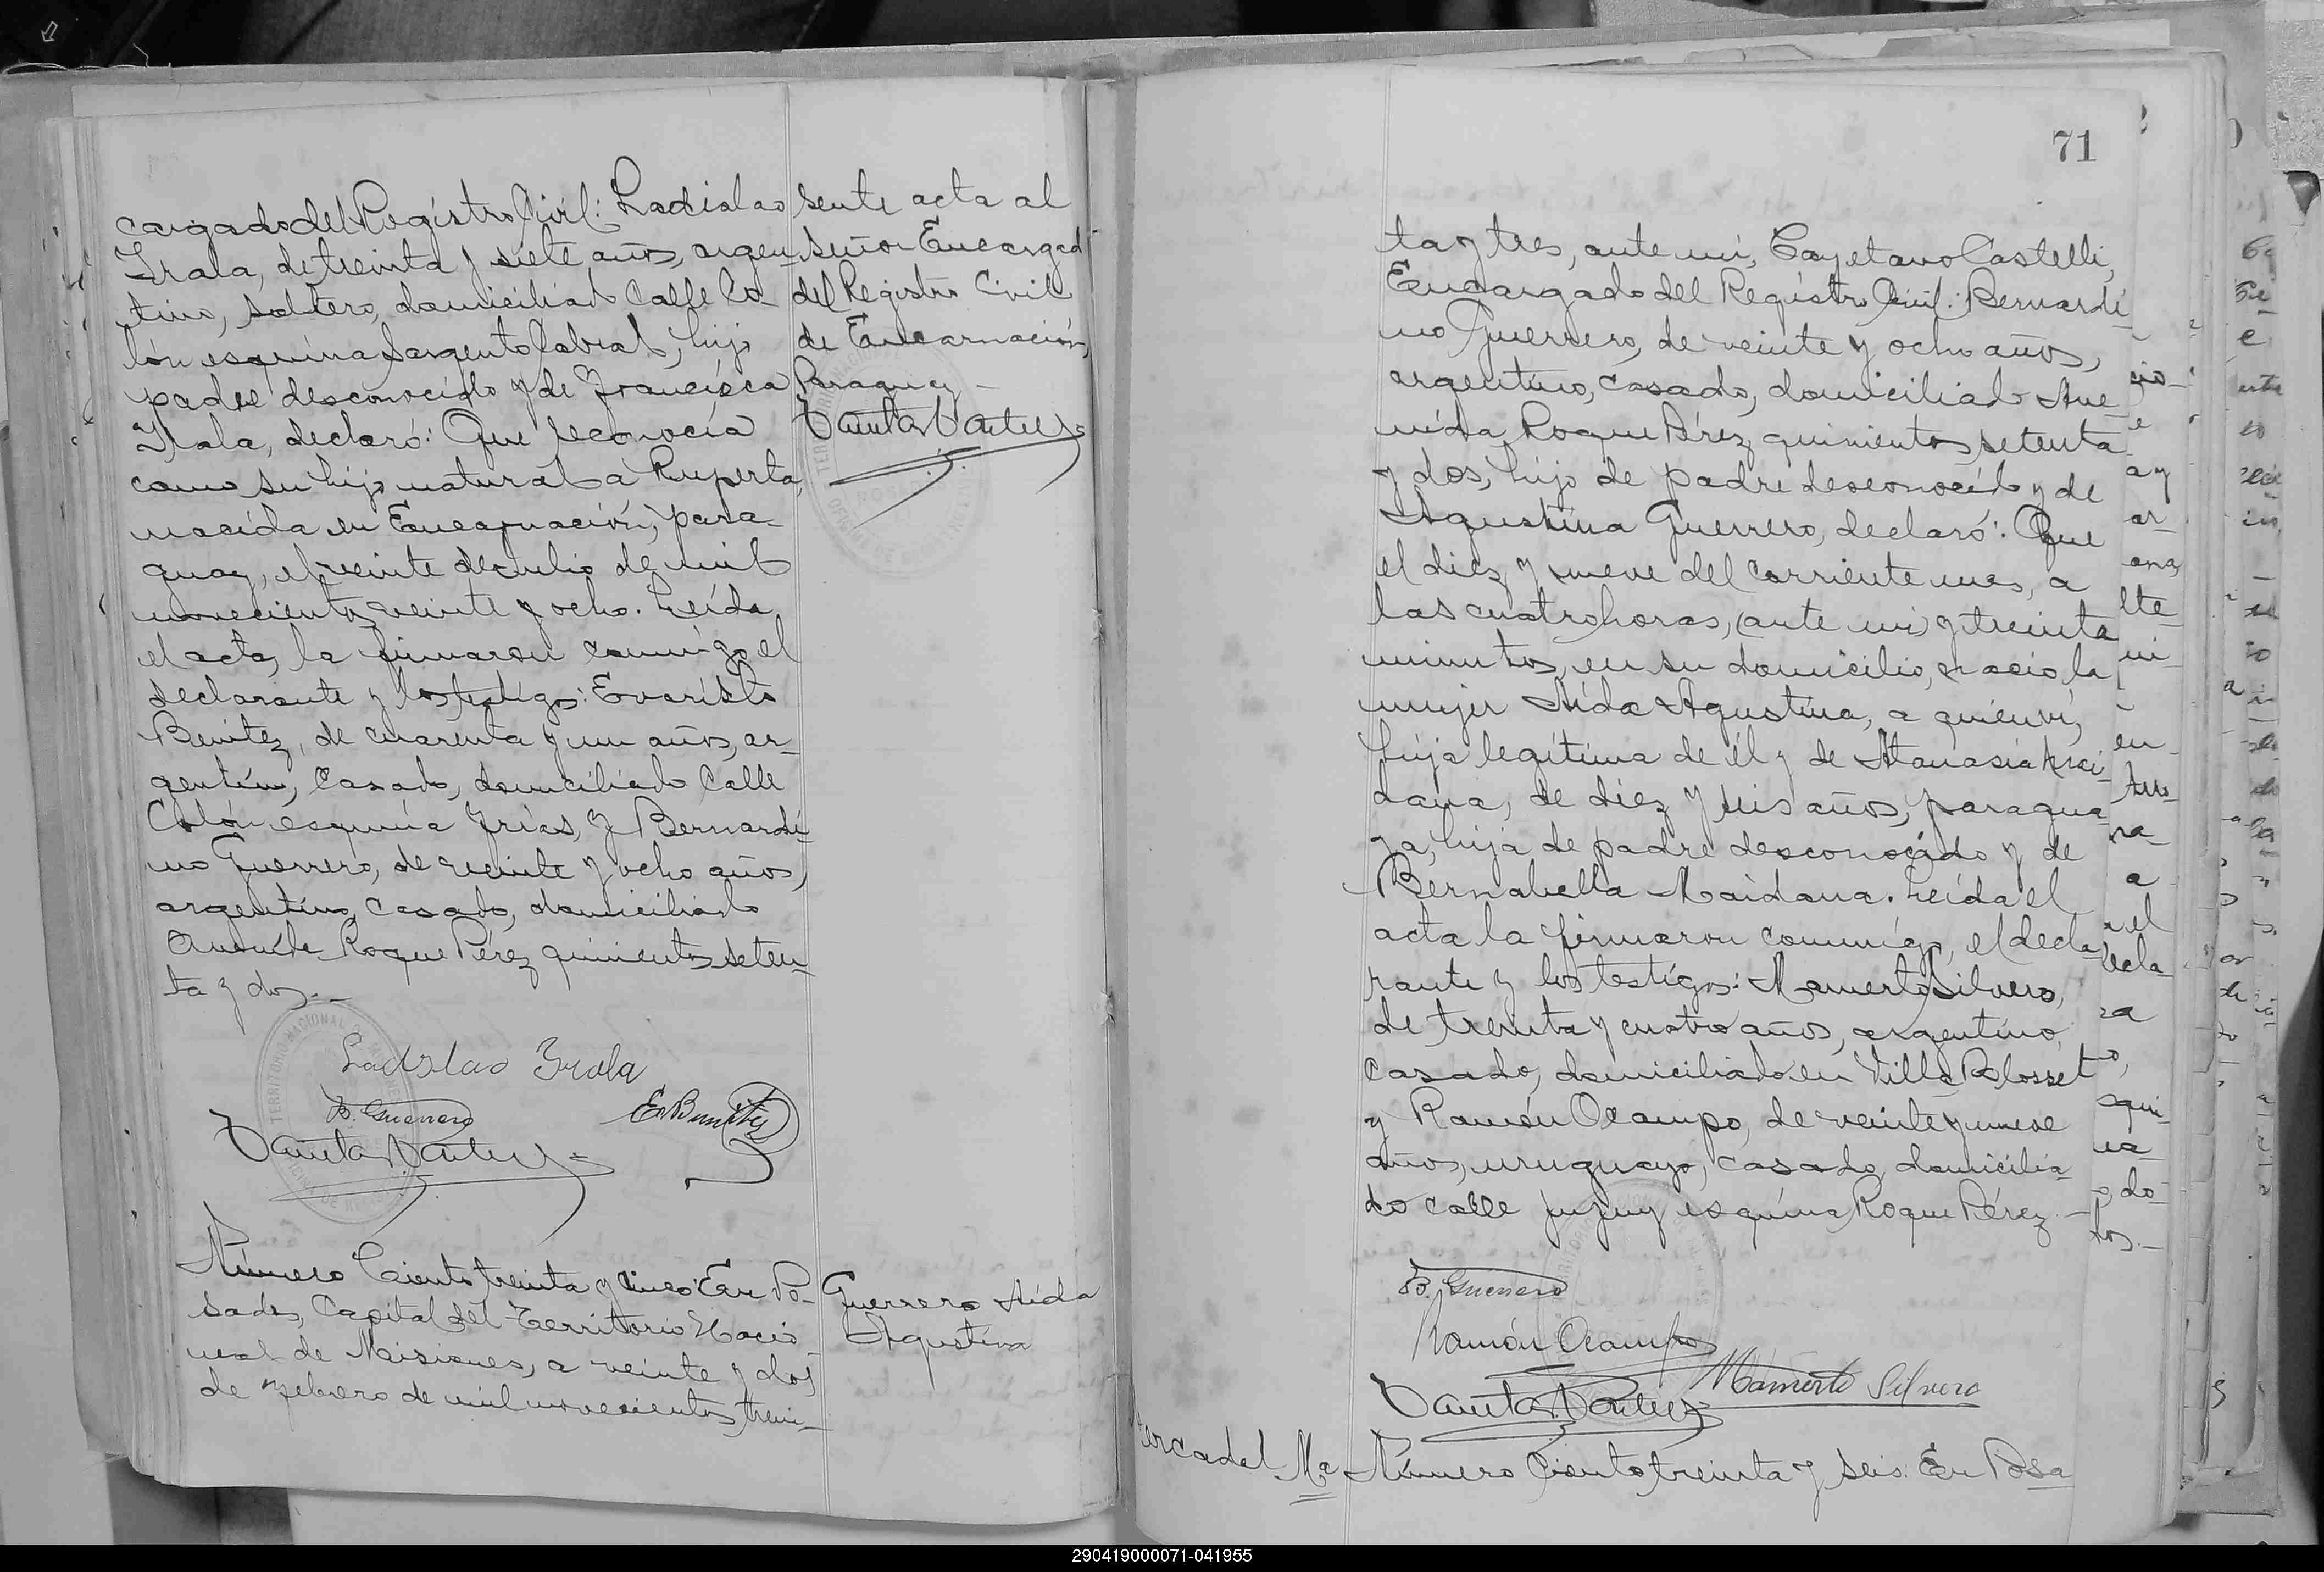 cargado del Registro Civil: Ladislao
Irala, de treinta y siete años, argen-
tino, soltero, domiciliado Calle Co-
lón esquina Sargento Cabral, hijo
padre desconocido y de Francisca
Irala, declaró: Que reconocía
como su hijo natural a Ruperta,
nacida en Encarnación, para-
guay, el veinte de julio de mil
novecientos veinte y ocho. Leída
el acta, la firmaron conmigo el
declarante y los testigos: Evaristo
Benitez, de cuarenta y un años, ar-
gentino, casado, domiciliado Calle
Colón esquina Frías, y Bernardi-
no Guerrero, de veinte y ocho años,
argentino, casado, domiciliado
Avenida Roque Pérez quinientos seten-
ta y dos.-
Ladislao Irala
B. Guerrero
E. Benitez
sente acta al
señor Encargad
del Registro Civil
de Encarnación,
Paraguay -
Número Ciento treinta y cinco: En Po-
sadas, Capital del Territorio Nacio-
nal de Misiones, a veinte y dos
de Febrero de mil novecientos trein-
Guerrero Aída
Agustina
71
ta y tres, ante mí, Cayetano Castelli,
Encargado del Registro Civil: Bernardi-
no Guerrero, de veinte y ocho años,
argentino, casado, domiciliado Ave-
nida Roque Pérez quinientos setenta
y dos, hijo de padre desconocido y de
Agustina Guerrero, declaró: Que
el diez y nueve del corriente mes, a
las cuatro horas, (ante mi) y treinta
minutos, en su domicilio, nació la
mujer Aída Agustina, a quien ví,
hija legítima de él y de Atanasia
dana, de diez y seis años, paragua-
ya, hija de padre desconocido y de
Bernabella Maidana. Leída el
acta la firmaron conmigo, el decla-
rante y los testigos: Mamerto Silvero,
de treinta y cuatro años, argentino,
casado, domiciliado en Villa Blosset
y Ramón Ocampo, de veinte y nueve
años, uruguayo, casado, domicilia-
do calle Jujuy esquina Roque Pérez -
B. Guerrero
Ramón Ocampo
Mamerto Silvero
Mª Número Ciento treinta y seis: En Posa-
290419000071-041955